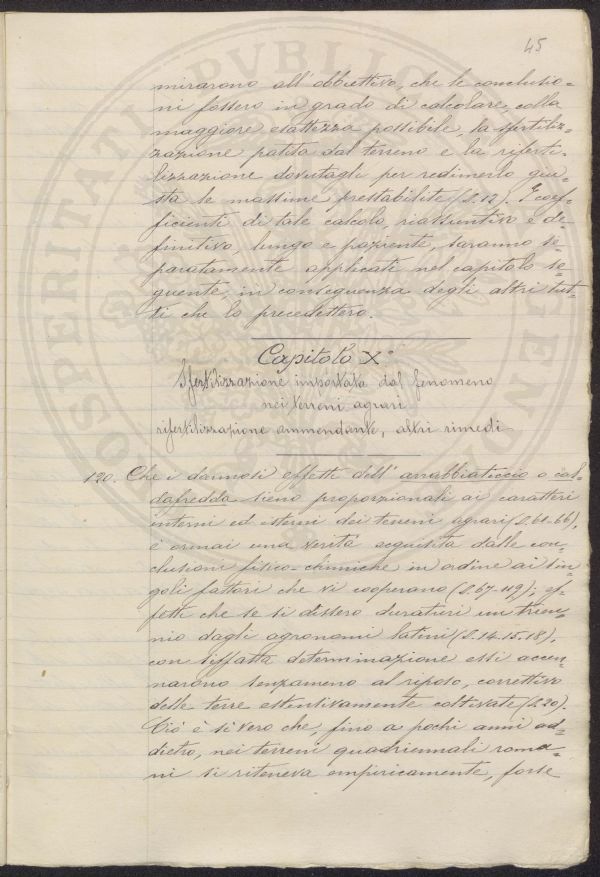 45
mirarono all'obbiettivo, che le conclusio=
ni fossero in grado di calcolare, colla
maggiore esattezza possibile, la sfertiliz=
zazione patita dal terreno e la riferti=
lizzazione dovutagli per redimerlo giu=
sta le massime prestabilite (§.12). I coef=
ficienti di tale calcolo, riassuntivo e de=
finitivo, lungo e paziente, saranno se=
paratamente applicati nel capitolo se=
guente, in conseguenza degli altri tut=
ti che lo precedettero.
Capitolo X°
Sfertilizzazione importata dal fenomeno
nei terreni agrari
rifertilizzazione ammendante, altri rimedi
120. Che i dannosi effetti dell'arrabbiaticcio o cal=
dafredda sieno proporzionati ai caratteri
interni ed esterni dei terreni agrari (§.61-66),
è ormai una verità acquisita dalle con=
clusioni fisico-chimiche in ordine ai sin=
goli fattori che vi cooperano (§.67-119); ef=
fetti che se si dissero duraturi un trien=
nio dagli agronomi latini (§.14-15-18),
con siffatta determinazione essi accen=
narono senzameno al riposo, correttivo
delle terre estensivamente coltivate (§.20).
Ciò è sì vero che, fino a pochi anni ad=
dietro, nei terreni quadriennali roma=
ni si riteneva empiricamente, forse
PROSPERITATI PVBLICAE